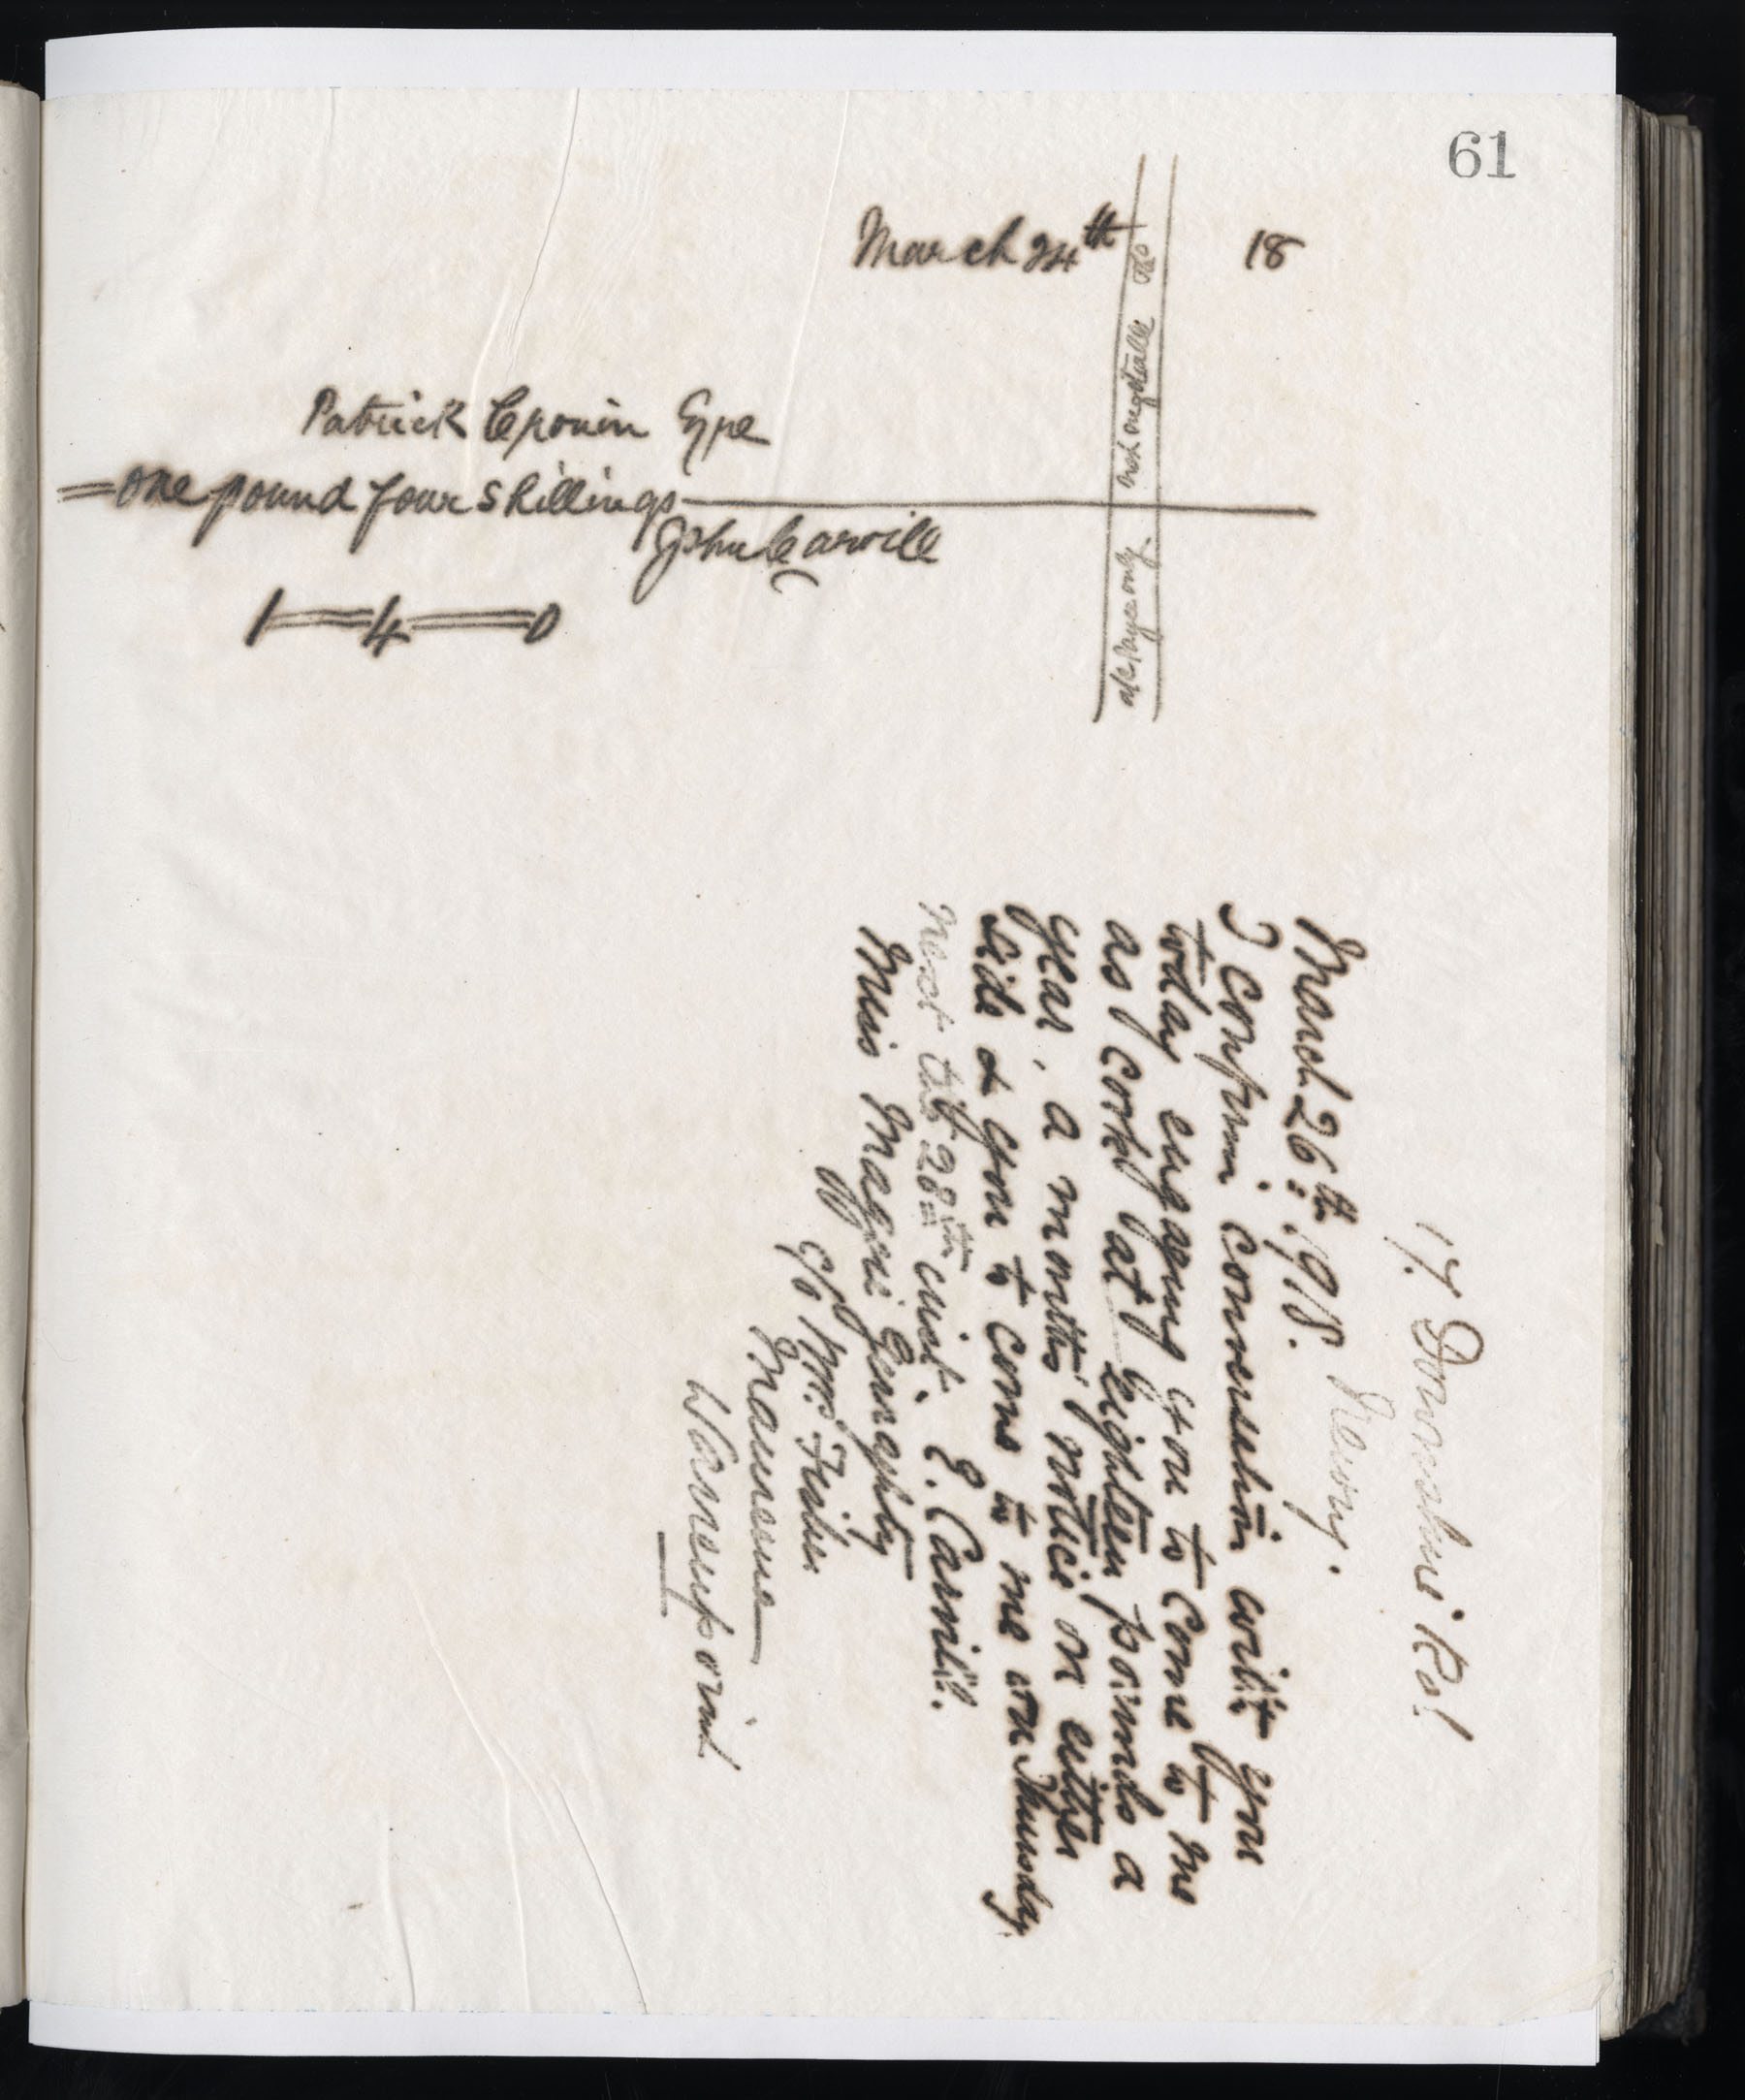 61
March 24th 18
Patrick Cronin Esqre
= one pound four shillings
John Carvill
1 = 4 = 0
a/c payee only. not negotiable &Co
17 Downshire Rd
Newry.
March 26th: 1918.
I confirm conversation with you
today engaging you to come to me
as cook at eighteen pounds a
year, a months notice on either
side & you to come to me on Thursday
next the 28th inst. E. Carvill.
Miss Maggie Geraghty
c/o Wm. Fisher
Warrenpoint